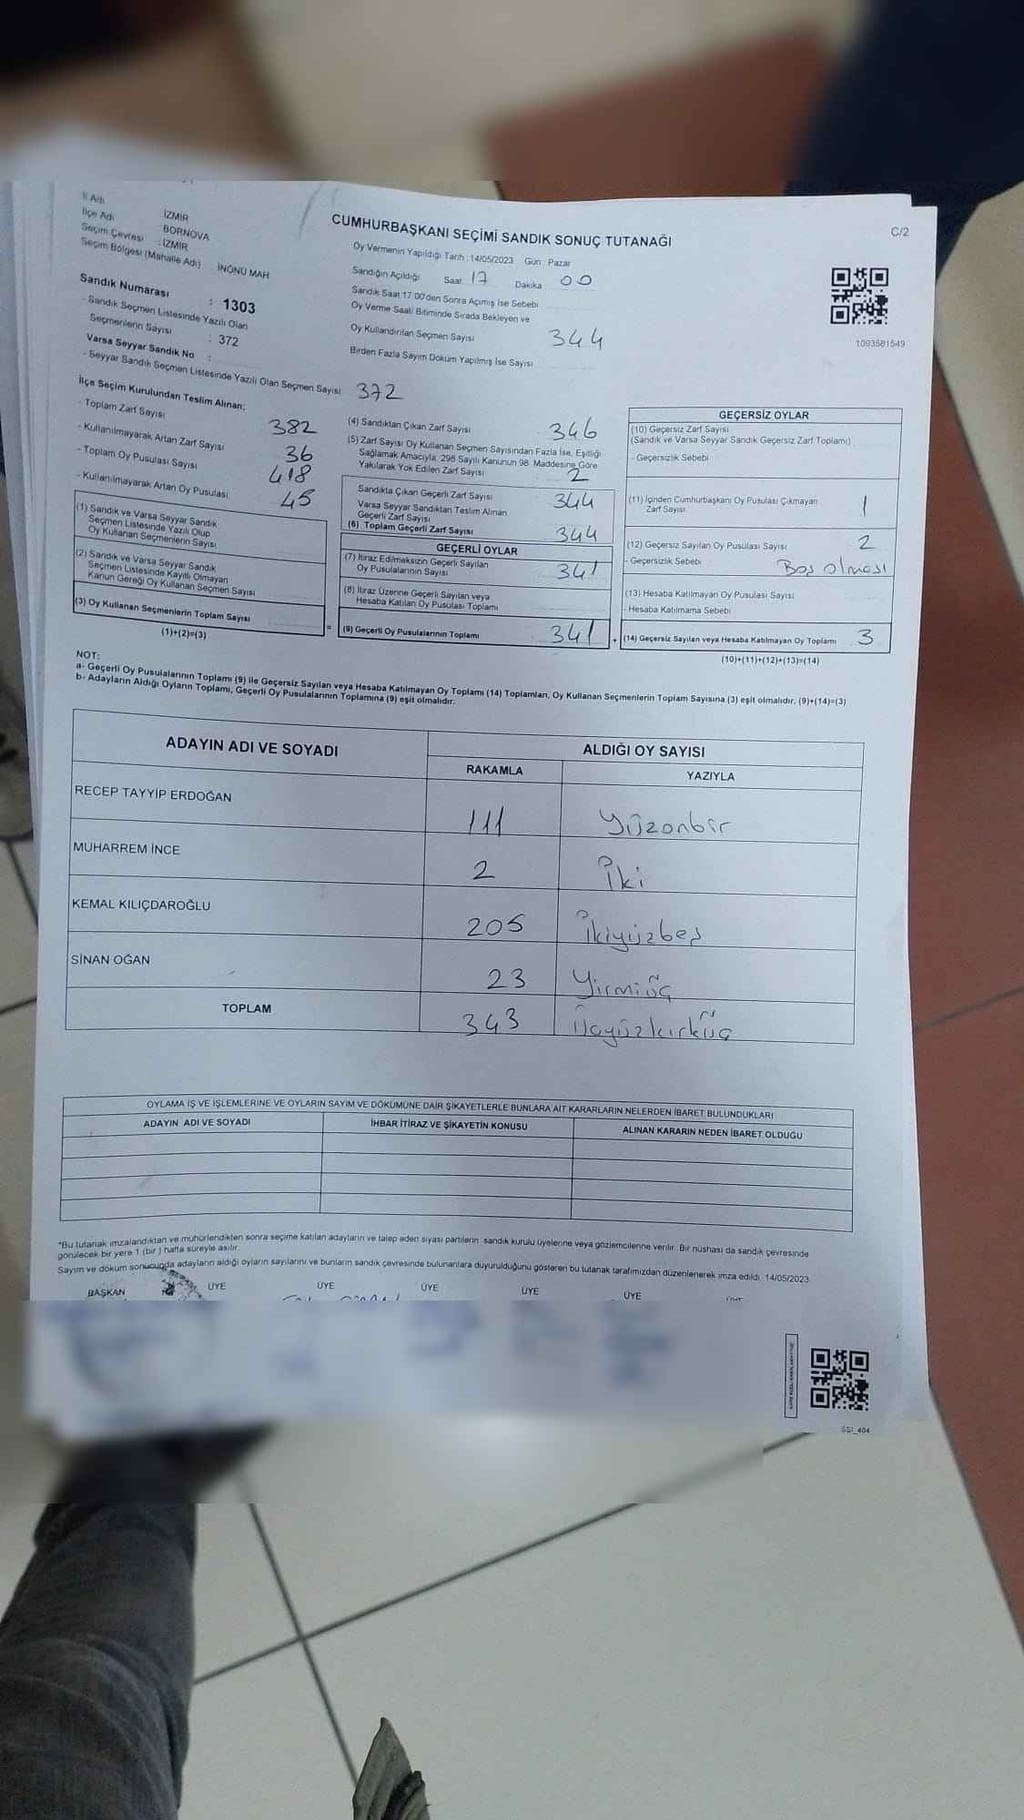 İl Adı
İZMİR
İlçe Adı
BORNOVA
Seçim Çevresi : İZMİR
Seçim Bölgesi (Mahalle Adı) : İNÖNÜ MAH
Sandık Numarası : 1303
- Sandık Seçmen Listesinde Yazılı Olan
Seçmenlerin Sayısı : 372
Varsa Seyyar Sandık No :
- Seyyar Sandık Seçmen Listesinde Yazılı Olan Seçmen Sayısı 372
CUMHURBAŞKANI SEÇİMİ SANDIK SONUÇ TUTANAĞI
C/2
Oy Vermenin Yapıldığı Tarih : 14/05/2023 Gün : Pazar
Sandığın Açıldığı Saat 17 Dakika 00
Sandık Saat 17:00'den Sonra Açımış İse Sebebi
Oy Verme Saati Bitiminde Sırada Bekleyen ve
Oy Kullandırılan Seçmen Sayısı 344
Birden Fazla Sayım Döküm Yapılmış İse Sayısı
1093581549
İlçe Seçim Kurulundan Teslim Alınan;
- Toplam Zarf Sayısı 382
- Kullanılmayarak Artan Zarf Sayısı 36
- Toplam Oy Pusulası Sayısı 418
- Kullanılmayarak Artan Oy Pusulası 45
(1) Sandık ve Varsa Seyyar Sandık
Seçmen Listesinde Yazılı Olup
Oy Kullanan Seçmenlerin Sayısı
(2) Sandık ve Varsa Seyyar Sandık
Seçmen Listesinde Kayıtlı Olmayan
Kanun Gereği Oy Kullanan Seçmen Sayısı
(3) Oy Kullanan Seçmenlerin Toplam Sayısı
(1)+(2)=(3)
(4) Sandıktan Çıkan Zarf Sayısı 346
(5) Zarf Sayısı Oy Kullanan Seçmen Sayısından Fazla İse, Eşitliği
Sağlamak Amacıyla, 298 Sayılı Kanunun 98. Maddesine Göre
Yakılarak Yok Edilen Zarf Sayısı 2
Sandıkta Çıkan Geçerli Zarf Sayısı 344
Varsa Seyyar Sandıktan Teslim Alınan
Geçerli Zarf Sayısı
(6) Toplam Geçerli Zarf Sayısı 344
GEÇERLİ OYLAR
(7) İtiraz Edilmeksizin Geçerli Sayılan
Oy Pusulalarının Sayısı 341
(8) İtiraz Üzerine Geçerli Sayılan veya
Hesaba Katılan Oy Pusulası Toplamı
= (9) Geçerli Oy Pusulalarının Toplamı 341
GEÇERSİZ OYLAR
(10) Geçersiz Zarf Sayısı
(Sandık ve Varsa Seyyar Sandık Geçersiz Zarf Toplamı)
- Geçersizlik Sebebi
(11) İçinden Cumhurbaşkanı Oy Pusulası Çıkmayan
Zarf Sayısı 1
(12) Geçersiz Sayılan Oy Pusulası Sayısı 2
- Geçersizlik Sebebi Boş olması
(13) Hesaba Katılmayan Oy Pusulası Sayısı
- Hesaba Katılmama Sebebi
+ (14) Geçersiz Sayılan veya Hesaba Katılmayan Oy Toplamı 3
(10)+(11)+(12)+(13)=(14)
NOT:
a- Geçerli Oy Pusulalarının Toplamı (9) ile Geçersiz Sayılan veya Hesaba Katılmayan Oy Toplamı (14) Toplamları, Oy Kullanan Seçmenlerin Toplam Sayısına (3) eşit olmalıdır. (9)+(14)=(3)
b- Adayların Aldığı Oyların Toplamı, Geçerli Oy Pusulalarının Toplamına (9) eşit olmalıdır.
ADAYIN ADI VE SOYADI ALDIĞI OY SAYISI
RAKAMLA YAZIYLA
RECEP TAYYİP ERDOĞAN 111 Yüzonbir
MUHARREM İNCE 2 İki
KEMAL KILIÇDAROĞLU 205 İkiyüzbeş
SİNAN OĞAN 23 Yirmiüç
TOPLAM 343 Üçyüzkırküç
OYLAMA İŞ VE İŞLEMLERİNE VE OYLARIN SAYIM VE DÖKÜMÜNE DAİR ŞİKAYETLERLE BUNLARA AİT KARARLARIN NELERDEN İBARET BULUNDUKLARI
ADAYIN ADI VE SOYADI İHBAR İTİRAZ VE ŞİKAYETİN KONUSU ALINAN KARARIN NEDEN İBARET OLDUĞU
*Bu tutanak imzalandıktan ve mühürlendikten sonra seçime katılan adayların ve talep eden siyasi partilerin sandık kurulu üyelerine veya gözlemcilerine verilir. Bir nüshası da sandık çevresinde
görülecek bir yere 1 (bir) hafta süreyle asılır.
Sayım ve döküm sonucunda adayların aldığı oyların sayılarını ve bunların sandık çevresinde bulunanlara duyurulduğunu gösteren bu tutanak tarafımızdan düzenlenerek imza edildi. 14/05/2023
BAŞKAN ÜYE ÜYE ÜYE ÜYE ÜYE
SSI_404